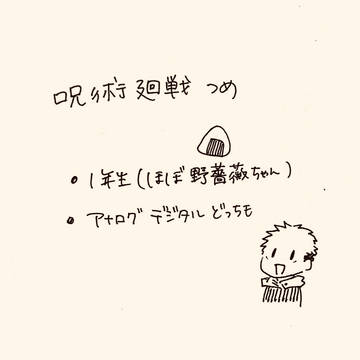 呪術廻戦 つめ
• 1年生(ほぼ野薔薇ちゃん)
• アナログ デジタル どっちも